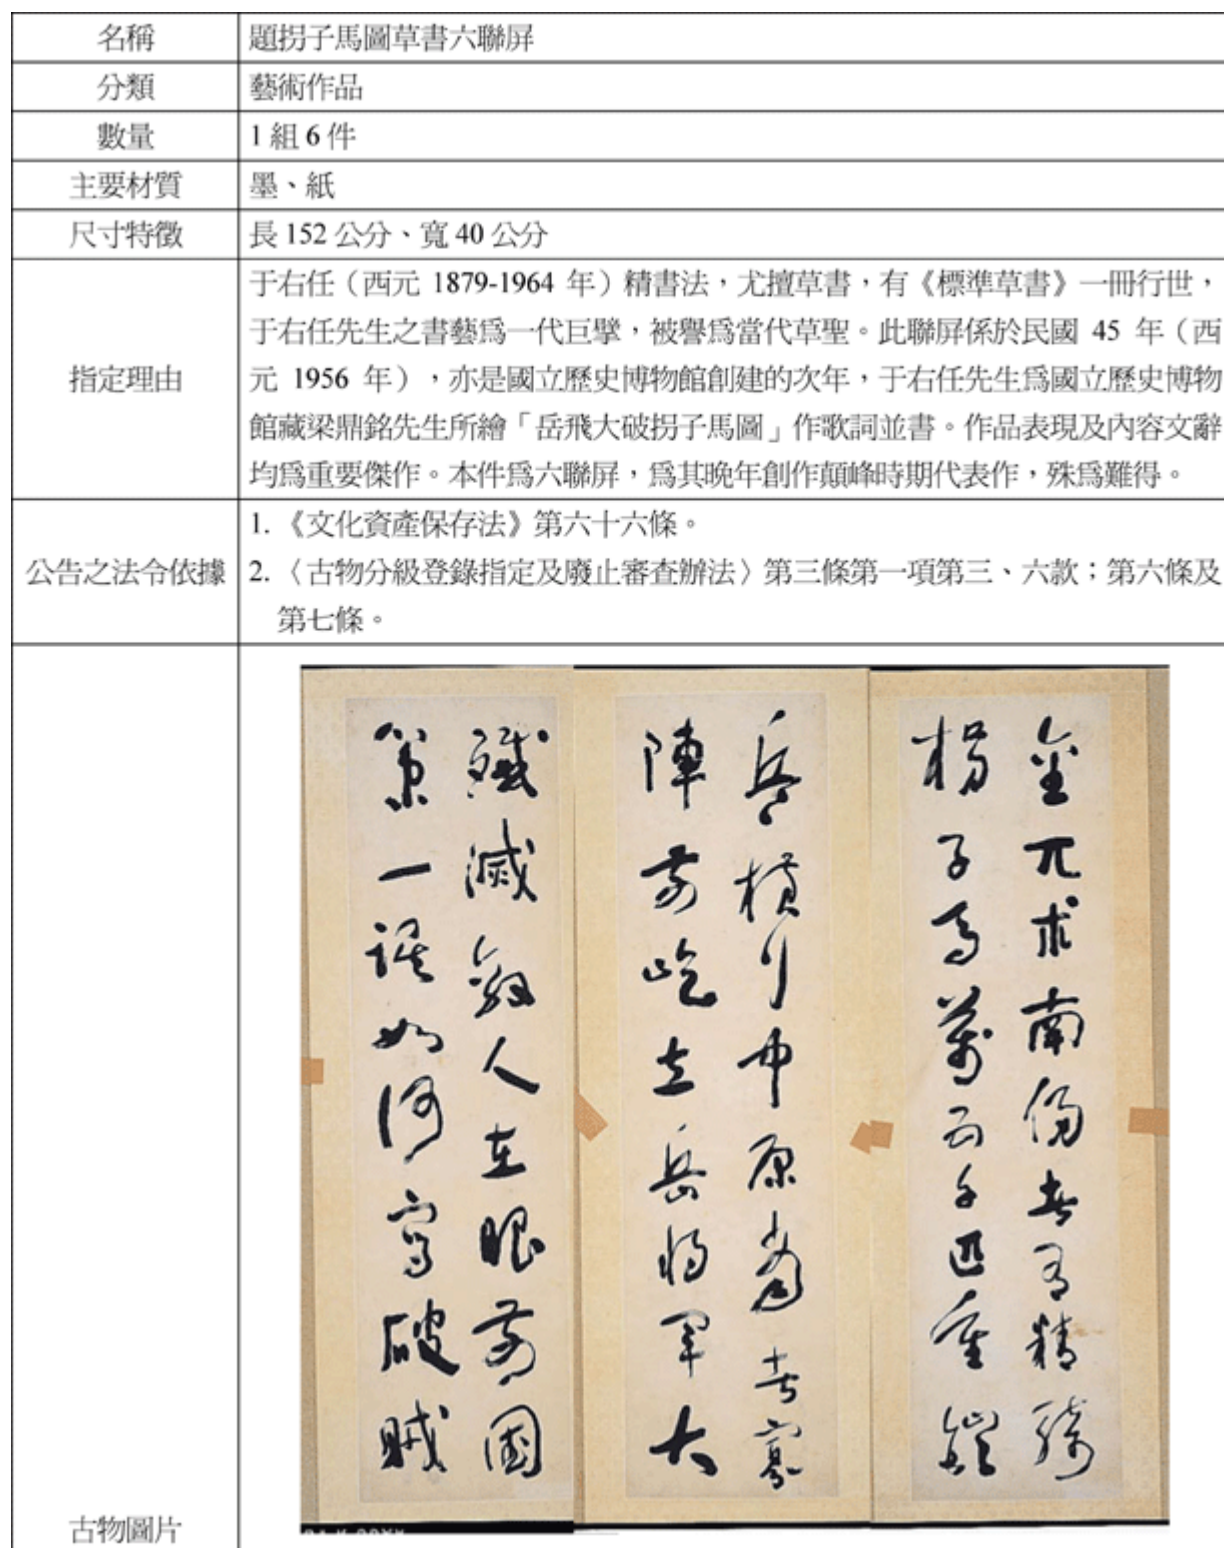 名稱
題拐子馬圖草書六聯屏
分類
藝術作品
數量
1 組 6 件
主要材質
墨、紙
尺寸特徵
長 152 公分、寬 40 公分
指定理由
于右任（西元 1879-1964 年）精書法，尤擅草書，有《標準草書》一冊行世，
于右任先生之書藝爲一代巨擘，被譽爲當代草聖。此聯屏係於民國 45 年（西
元 1956 年），亦是國立歷史博物館創建的次年，于右任先生爲國立歷史博物
館藏梁鼎銘先生所繪「岳飛大破拐子馬圖」作歌詞並書。作品表現及內容文辭
均爲重要傑作。本件爲六聯屏，爲其晚年創作顛峰時期代表作，殊爲難得。
公告之法令依據
1. 《文化資產保存法》第六十六條。
2. 〈古物分級登錄指定及廢止審查辦法〉第三條第一項第三、六款；第六條及
第七條。
古物圖片
金兀朮南侵者有精騎
拐子馬萬五千匹重鎧
兵橫行中原當者寡
陣前屹立岳將軍大
殲滅敵人在眼前國
策一誤如何寫破賊